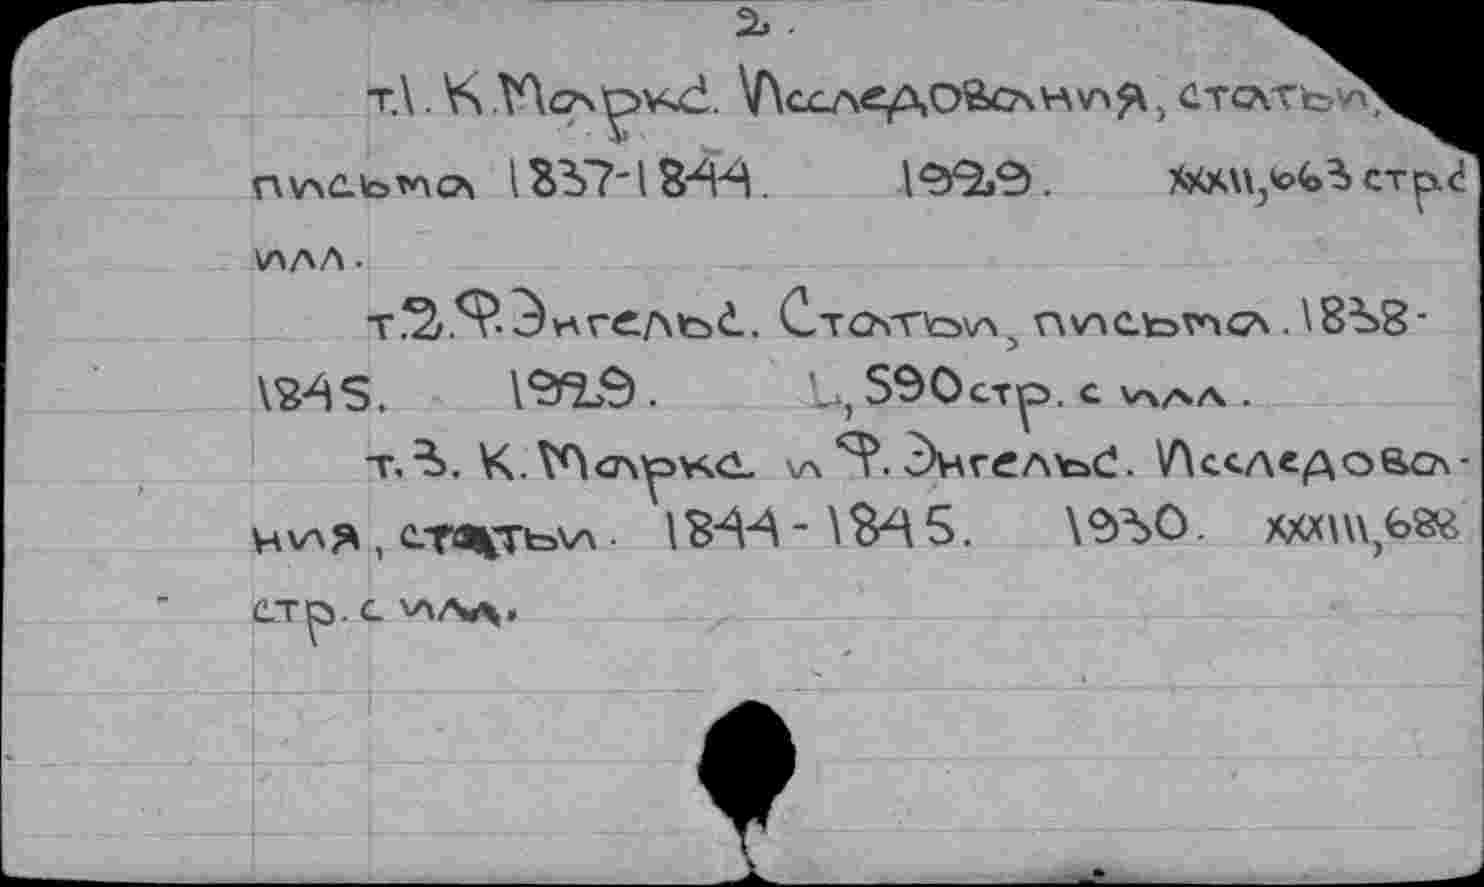 2.
т.1. К.Маркс. Исследования, статьи,
письма 1837-1844. 1929. XXXII,663 стр.с
илл.
т.2. Ф.Энгельс. Статьи, письма. 1838-
1845. 1929. L,590стр. с илл.
т.3. К.Маркс и Ф.Энгельс. Исследова-
ния, статьи. 1844-1845. 1930. XXXIII,688
стр. с илл.